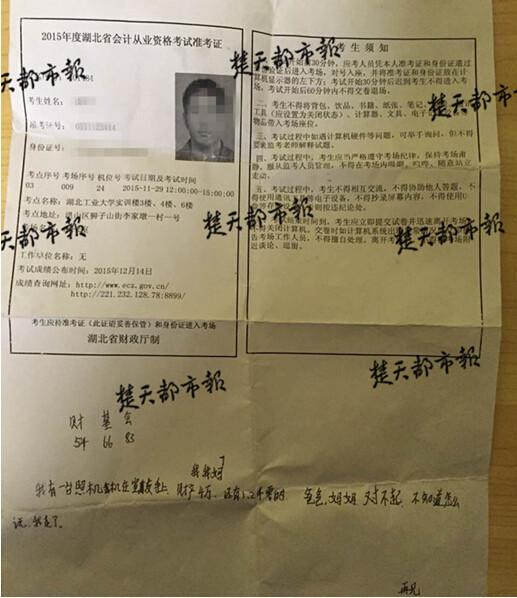 2015年度湖北省会计从业资格考试准考证
楚天都市報
84
考生姓名:
准考证号:
身份证号:
考点序号 考场序号 机位号 考试日期及考试时间
03 009 24 2015-11-29 12:00:00-15:00:00
考点名称: 湖北工业大学实训楼3楼、4楼、6楼
考点地址: 洪山区狮子山街李家墩一村一号
工作单位名称: 无
考试成绩公布时间: 2015年12月14日
成绩查询网址: http://www.ecz.gov.cn/
http://221.232.128.78:8899/
考生应持准考证(此证请妥善保管)和身份证进入考场
湖北省财政厅制
考 生 须 知
开始前30分钟,应考人员凭本人准考证和身份证通过
验证后进入考场,对号入座,并将准考证和身份证放在计
算机显示器的左下方;考试开始后迟到考生不得进入考
场;考试开始后60分钟内不得交卷退场。
二、考生不得将背包、饮品、书籍、纸张、笔记、
工具(应设置为关闭状态)、计算器、文具、电子
物品带入考场座位。
三、考试过程中如遇计算机硬件等问题,可举手询问,但不得
要求监考老师解释试题。
四、考试过程中,考生应当严格遵守考场纪律,保持考场肃
静,服从监考人员管理,不得在考场内吸烟、喧哗、随意站立
走动。
五、考试过程中,考生不得相互交流,不得协助他人答题,不
得使用通讯 等电子设备,不得抄录屏幕内容,
按违纪论处。
考生应立即提交试卷并迅速离开考场
不得关闭计算机。交卷时如计算机系统出
告考场工作人员,不得擅自处理。离开考
近谈论、逗留。
楚天都市報
楚天都市報
楚天都市報
楚天都市報
楚天都市報
楚天都市報
财 基 会
54 66 83
我有一台照相机
还有 爸爸,姐姐 对不起,不知道怎么
说,我走了。
再见